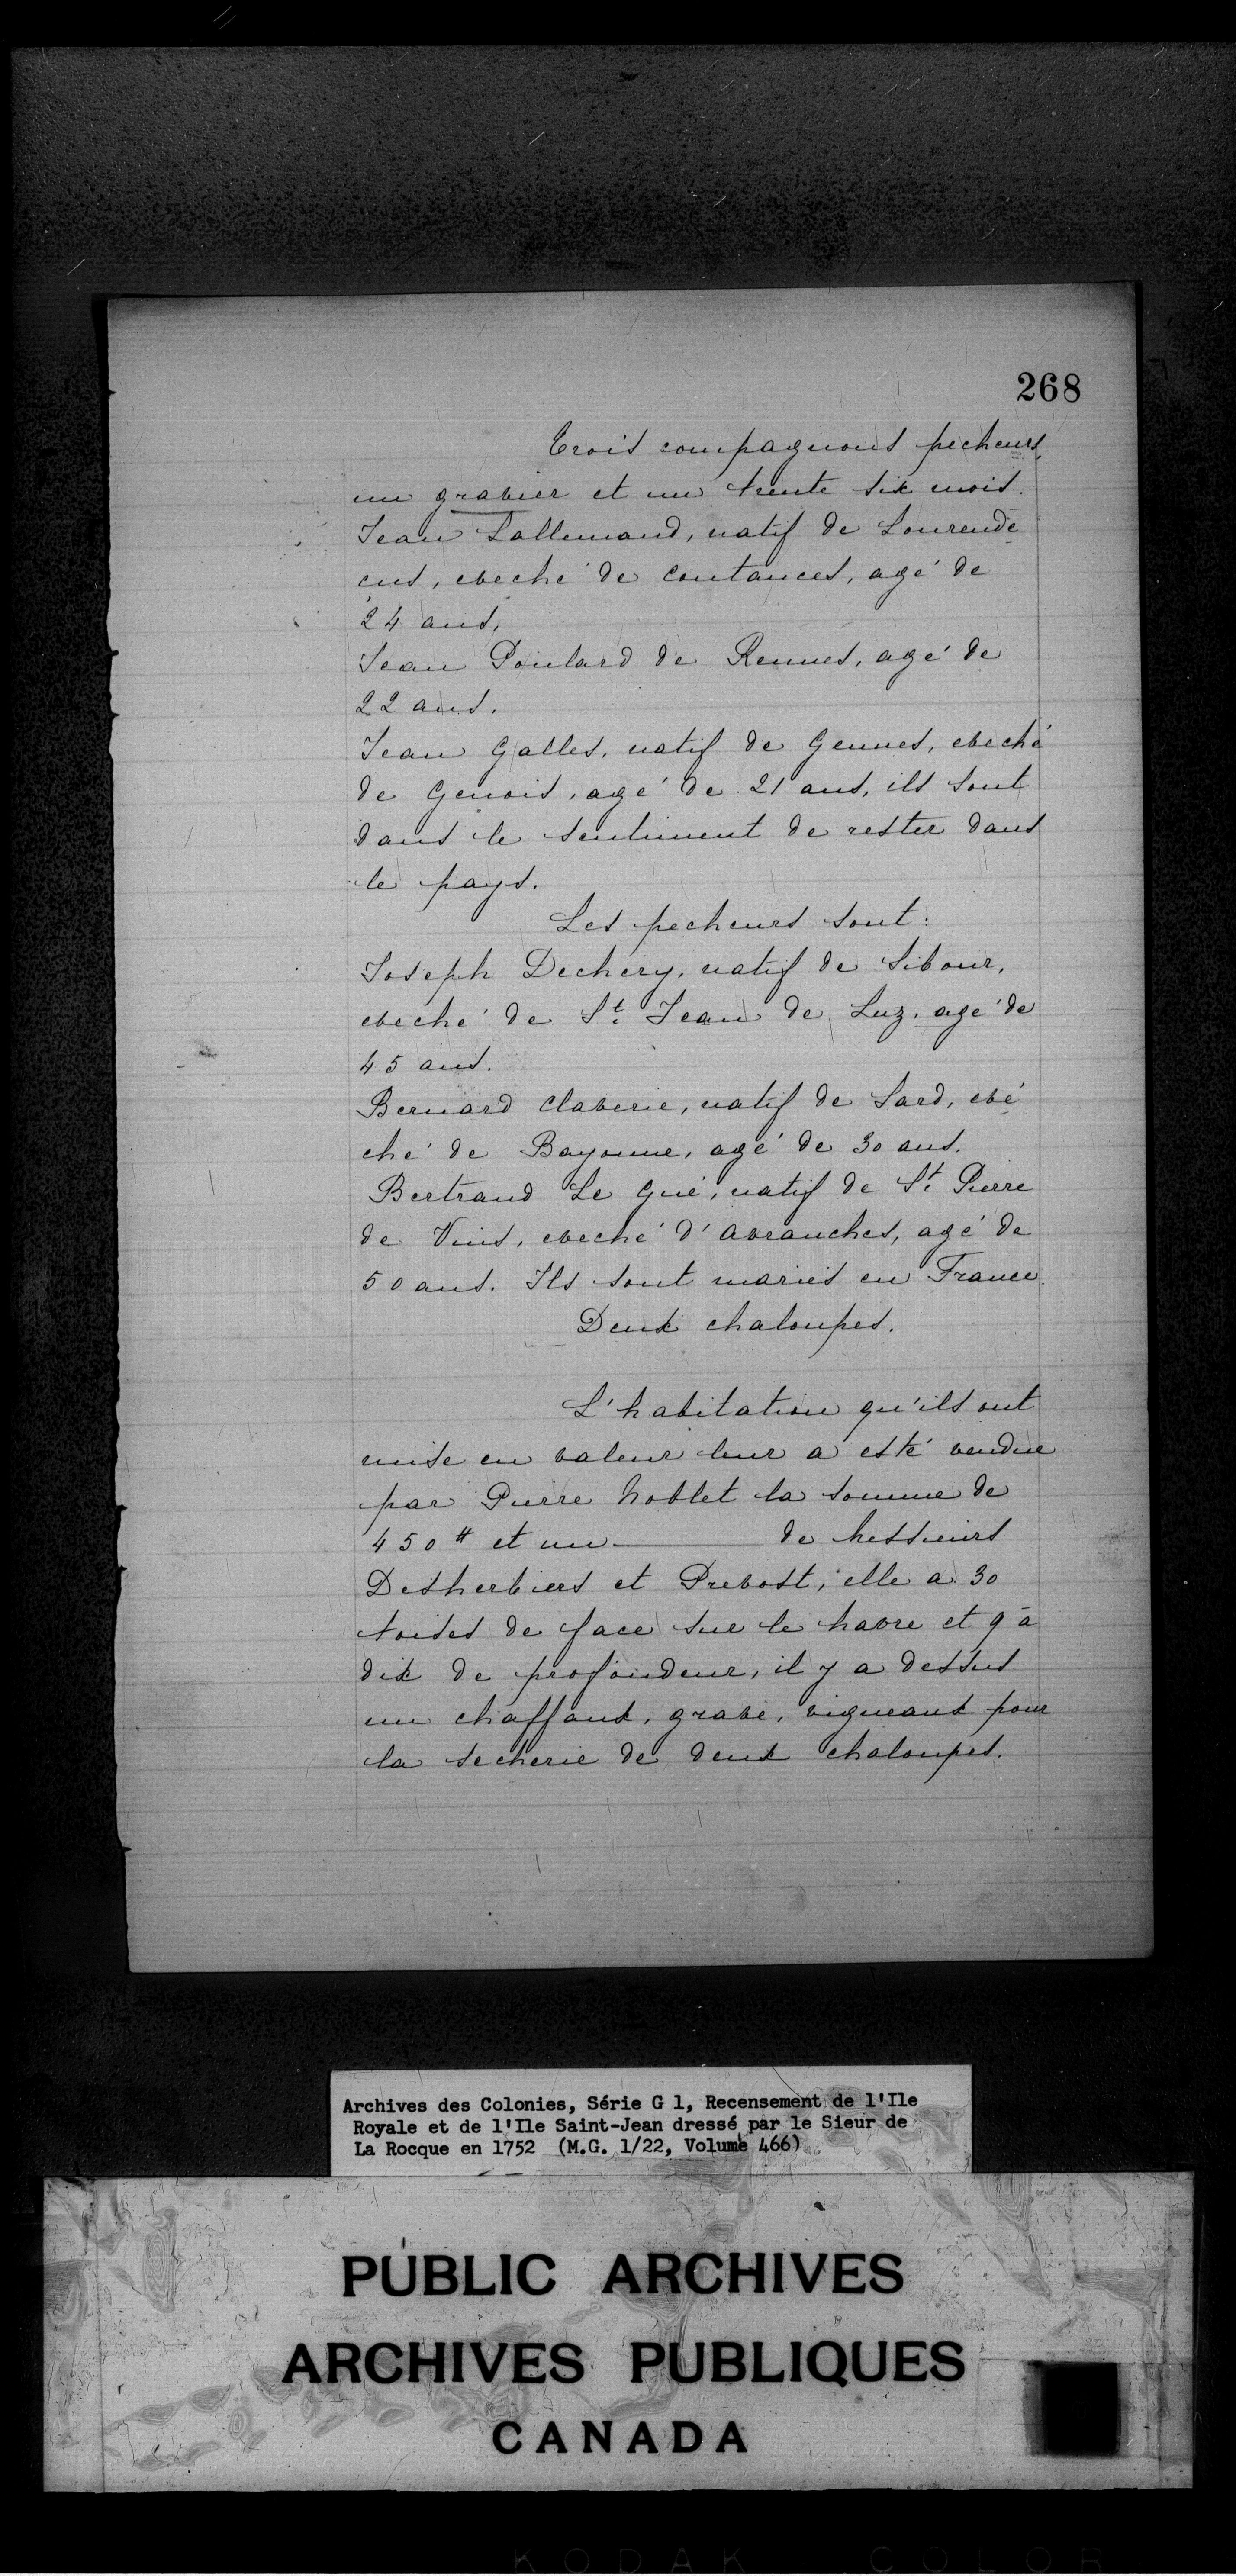 268
Trois compagnons pecheurs,
un gravier et un trente six mois.
Jean Lallemand, natif de Lourende
cus, eveché de Coutances, agé de
24 ans,
Jean Poulard de Rennes, agé de
22 ans.
Jean Galles, natif de Gennes, eveché
de Genois, agé de 21 ans, ils sont
dans le sentiment de rester dans
le pays.
Les pecheurs sont:
Joseph Dechery, natif de Sibour,
eveché de St. Jean de Luz, agé de
45 ans.
Bernard Claverie, natif de Sard, evé
ché de Bayonne, agé de 30 ans.
Bertrand Le Gué, natif de St. Pierre
de Vins, eveché d'Avranches, agé de
50 ans. Ils sont mariés en France.
Deux chaloupes.
L'habitation qu'ils ont
mise en valeur leur a esté vendue
par Pierre Noblet la somme de
450# et un ——— de Messieurs
Desherbiers et Prevost, elle a 30
toises de face sur le havre et 9 à
dix de profondeur, il y a dessus
un chaffaux, grave, vigneaux pour
la secherie de deux chaloupes.
Archives des Colonies, Série G 1, Recensement de l'Ile
Royale et de l'Ile Saint-Jean dressé par le Sieur de
La Rocque en 1752 (M.G. 1/22, Volume 466)
PUBLIC ARCHIVES
ARCHIVES PUBLIQUES
CANADA
KODAK COLOR